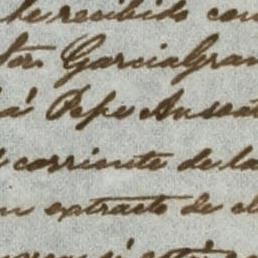 he recibido con
tor Garcia Gran
á Pepe Anseat
corriente de la
extracto de el